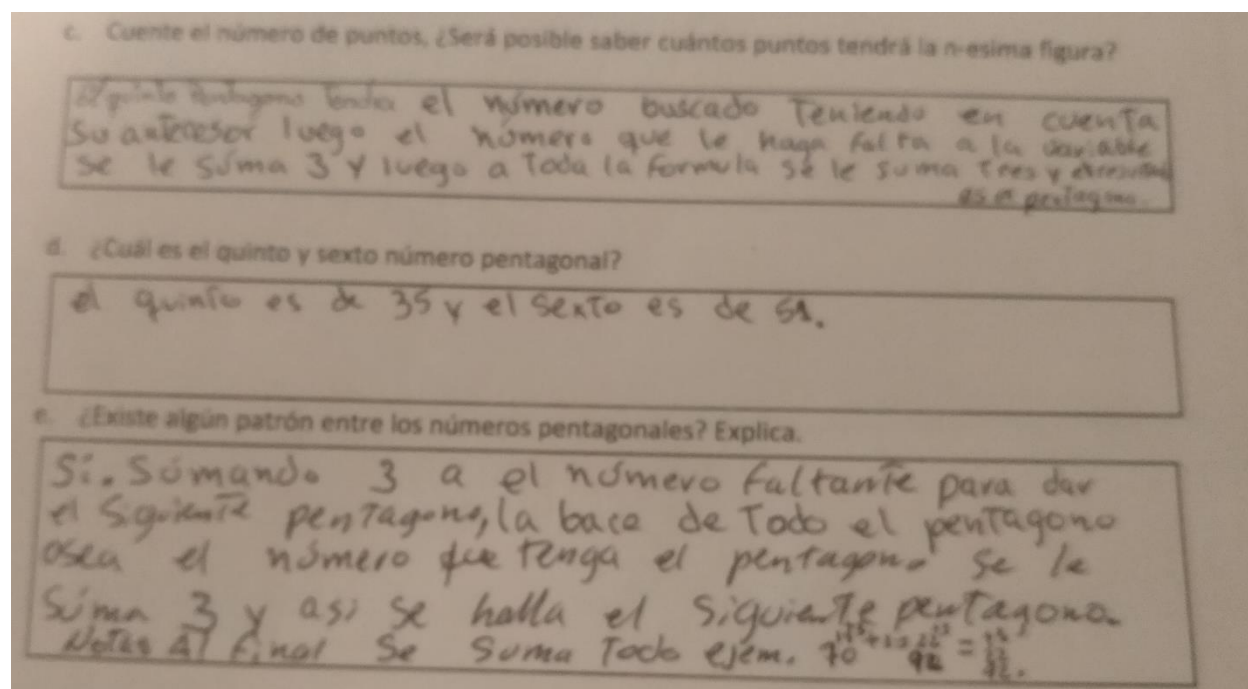 c. Cuente el número de puntos, ¿Será posible saber cuántos puntos tendrá la n-esima figura?
el número buscado Teniendo en cuenta
su antecesor luego el número que le haga falta a la variable
se le suma 3 y luego a Toda la formula se le suma tres y
es el pentagono.
d. ¿Cuál es el quinto y sexto número pentagonal?
el quinto es de 35 y el sexto es de 51.
e. ¿Existe algún patrón entre los números pentagonales? Explica.
Si. Sumando 3 a el número faltante para dar
el siguiente pentagono, la bace de Todo el penTagono
osea el número que tenga el pentagono se le
suma 3 y asi se halla el siguiente penTagono.
Notas Al final se suma Todo ejem. 70 92 =